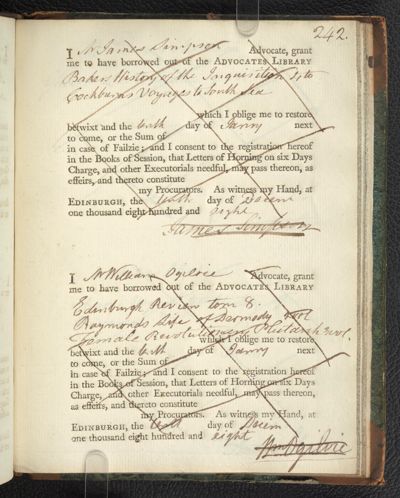 242.
I Mr James Simpson Advocate, grant
me to have borrowed out of the ADVOCATES LIBRARY
Bakers History of the Inquisition
Cockburns Voyages to South Sea
which I oblige me to restore
betwixt and the day of Janry next
to come, or the Sum of
in case of Failzie; and I consent to the registration hereof
in the Books of Session, that Letters of Horning on six Days
Charge, and other Executorials needful, may pass thereon, as
effeirs, and thereto constitute
my Procurators. As witness my Hand, at
EDINBURGH, the day of Decem
one thousand eight hundred and eight
James Simpson
I Mr William Ogilvie Advocate, grant
me to have borrowed out of the ADVOCATES LIBRARY
Edinburgh Review tom 8.
Raymonds Life of Dermody 2 vol
Female Revolutionary Plutarch 3 vol.
which I oblige me to restore
betwixt and the day of Janry next
to come, or the Sum of
in case of Failzie; and I consent to the registration hereof
in the Books of Session, that Letters of Horning on six Days
Charge, and other Executorials needful, may pass thereon,
as effeirs, and thereto constitute
my Procurators. As witness my Hand, at
EDINBURGH, the day of Decem
one thousand eight hundred and eight
Wm Ogilvie